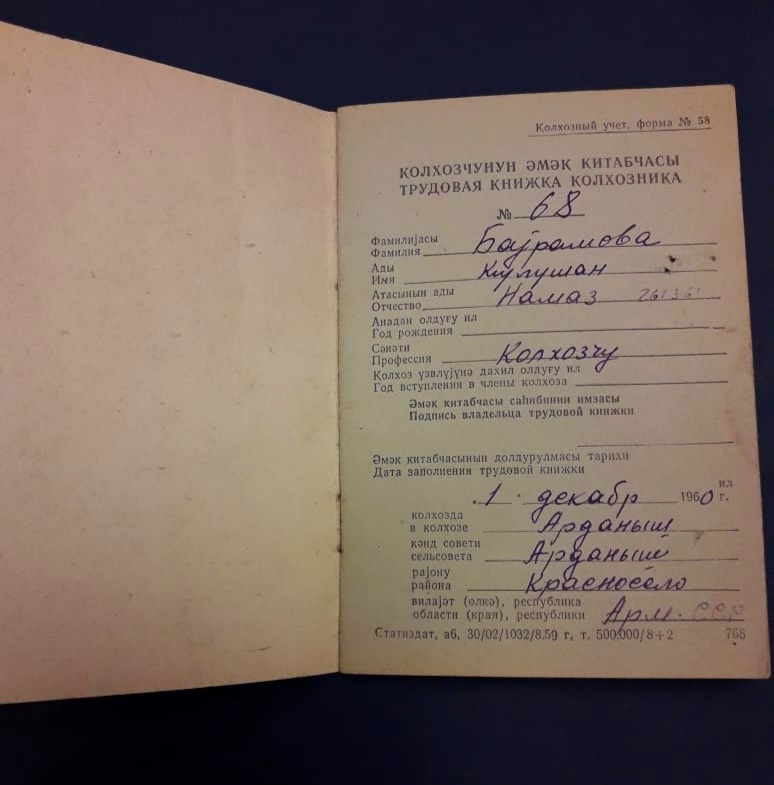 Колхозный учет, форма № 58
КОЛХОЗЧУНУН ӘМӘК КИТАБЧАСЫ
ТРУДОВАЯ КНИЖКА КОЛХОЗНИКА
№ 68
Фамилијасы
Фамилия Байрамова
Ады
Имя Кулушан
Атасынын ады
Отчество Намаз
Анадан олдуғу ил
Год рождения
Сәнәти
Профессия Колхозчу
Колхоз үзвлүјүнә дахил олдуғу ил
Год вступления в члены колхоза
Әмәк китабчасы саһибинин имзасы
Подпись владельца трудовой книжки
Әмәк китабчасынын долдурулмасы тарихи
Дата заполнения трудовой книжки
ил
1 декабр 1960 г.
колхозда
в колхозе Арданыш
кәнд совети
сельсовета Арданыш
рајону
района Красносело
вилајәт (өлкә), республика
области (края), республики Арм. ССР
Статиздат, аб, 30/02/1032/8,59 г, т. 500.000/8+2 768